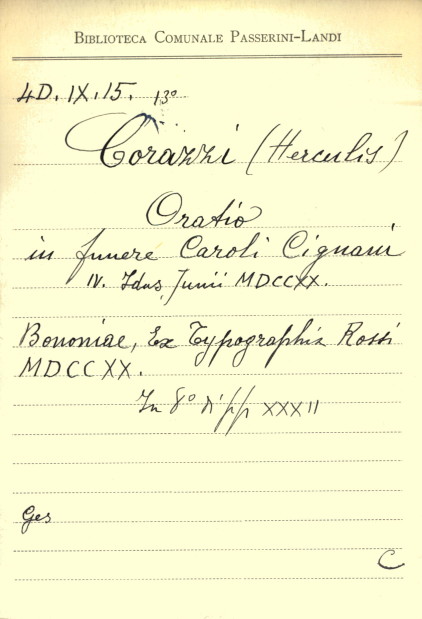 BIBLIOTECA COMUNALE PASSERINI-LANDI
4D. IX. 15. 13º
Corazzi (Herculis)
Oratio
in funere Caroli Cignani
IV. Idus Junii MDCCXX.
Bononiae, Ex Typographia Rossi
MDCCXX.
In 8º di pp XXXII
Ges
C